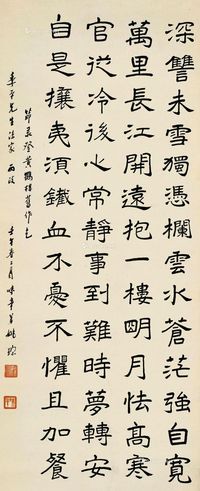 深讐未雪獨憑欄雲水蒼茫強自寬
萬里長江開遠抱一樓明月怯高寒
官從冷後心常靜事到難時夢轉安
自是攘夷須鐵血不憂不懼且加餐
節若登黃鶴樓舊作乞
季平先生法家兩政
壬午春二月味辛姚琮